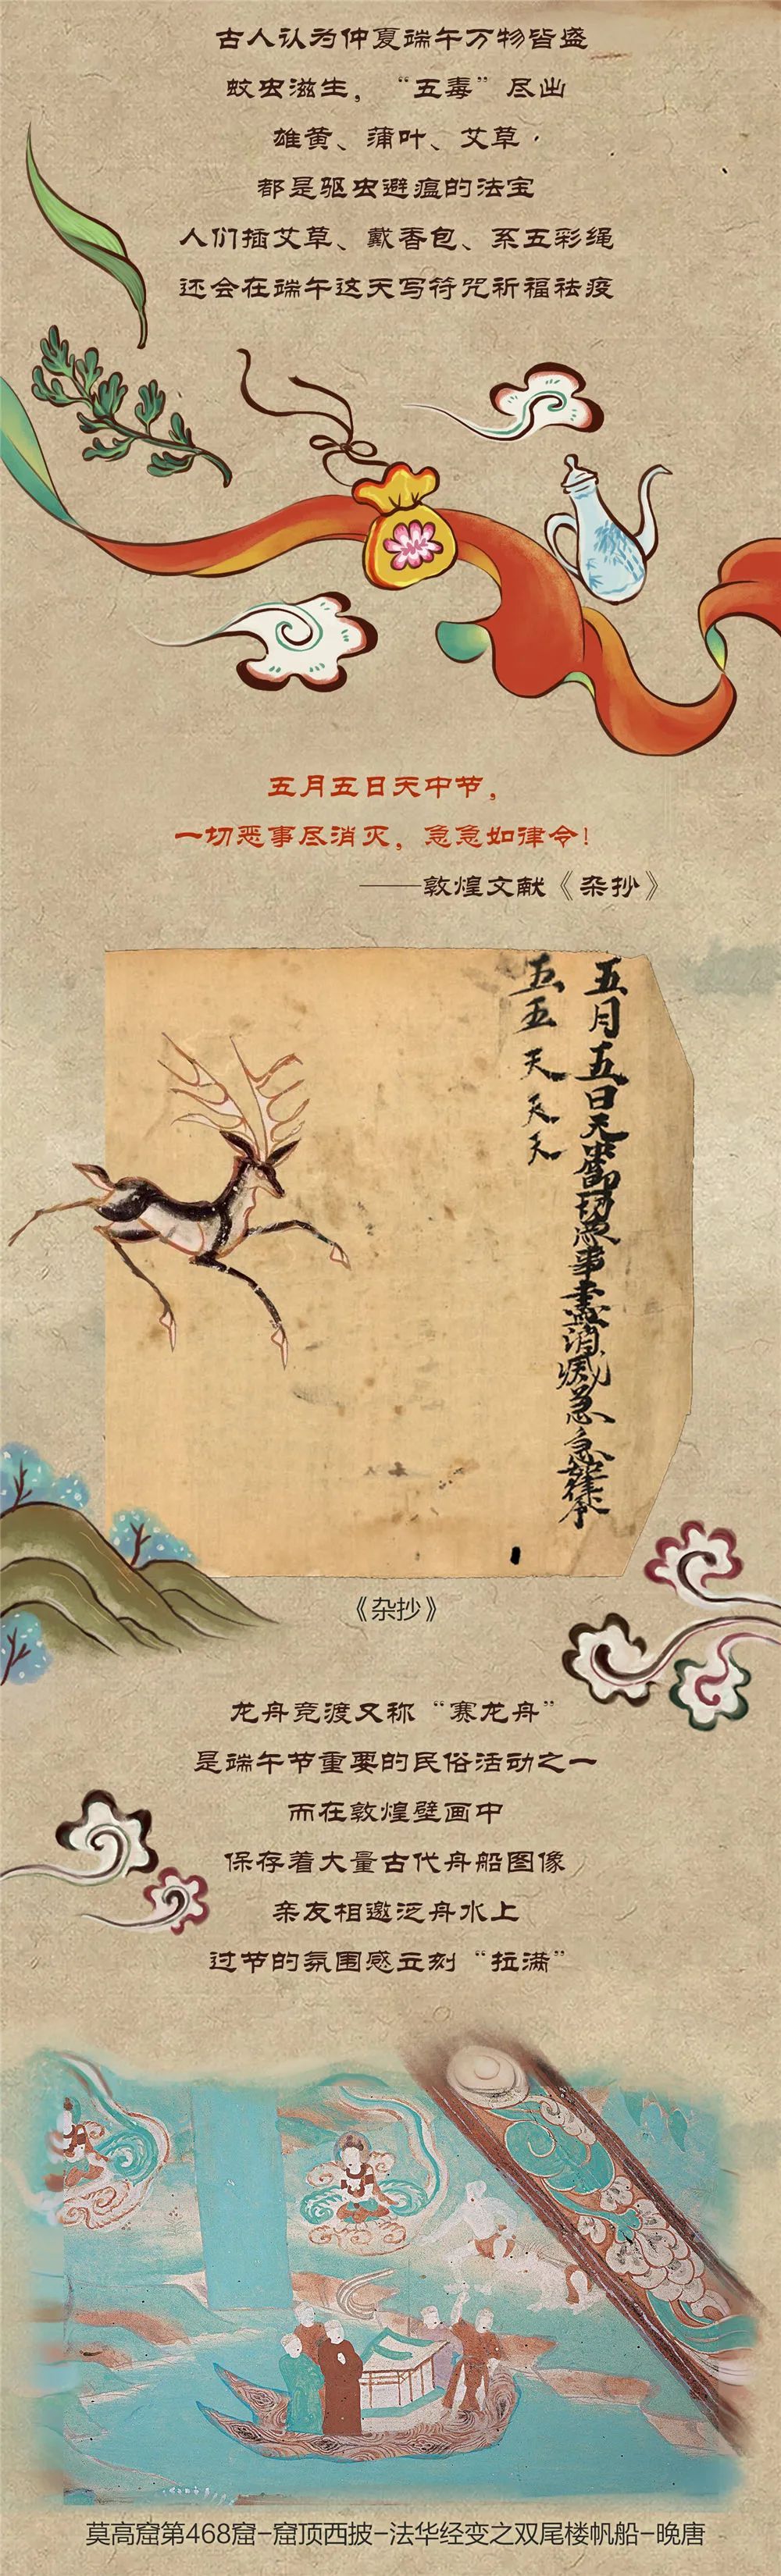 古人认为仲夏端午万物皆盛
蚊虫滋生，“五毒”尽出
雄黄、蒲叶、艾草
都是驱虫避瘟的法宝
人们插艾草、戴香包、系五彩绳
还会在端午这天写符咒祈福祛疫
五月五日天中节，
一切恶事尽消灭，急急如律令！
——敦煌文献《杂抄》
五月五日天中節一切惡事盡消滅急急如律令
五五天天天
《杂抄》
龙舟竞渡又称“赛龙舟”
是端午节重要的民俗活动之一
而在敦煌壁画中
保存着大量古代舟船图像
亲友相邀泛舟水上
过节的氛围感立刻“拉满”
莫高窟第468窟-窟顶西披-法华经变之双尾楼帆船-晚唐